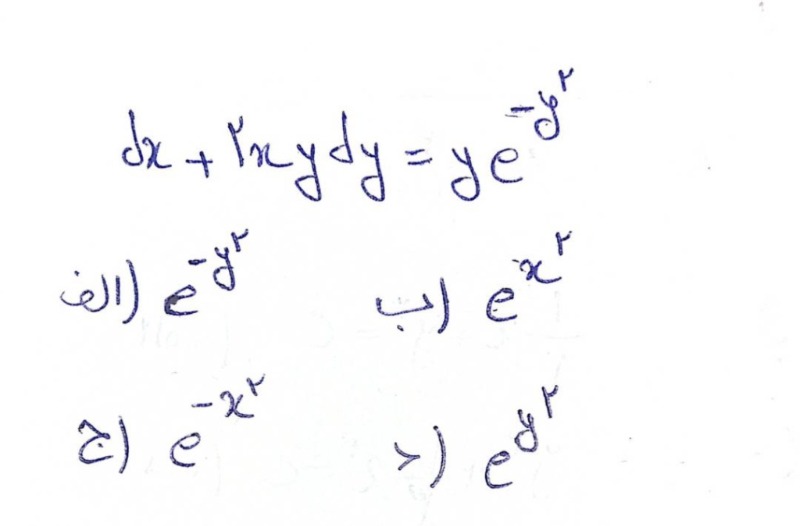 dx + ۲xydy = ye^{-y^۲}
الف) e^{-y^۲} ب) e^{x^۲}
ج) e^{-x^۲} د) e^{y^۲}